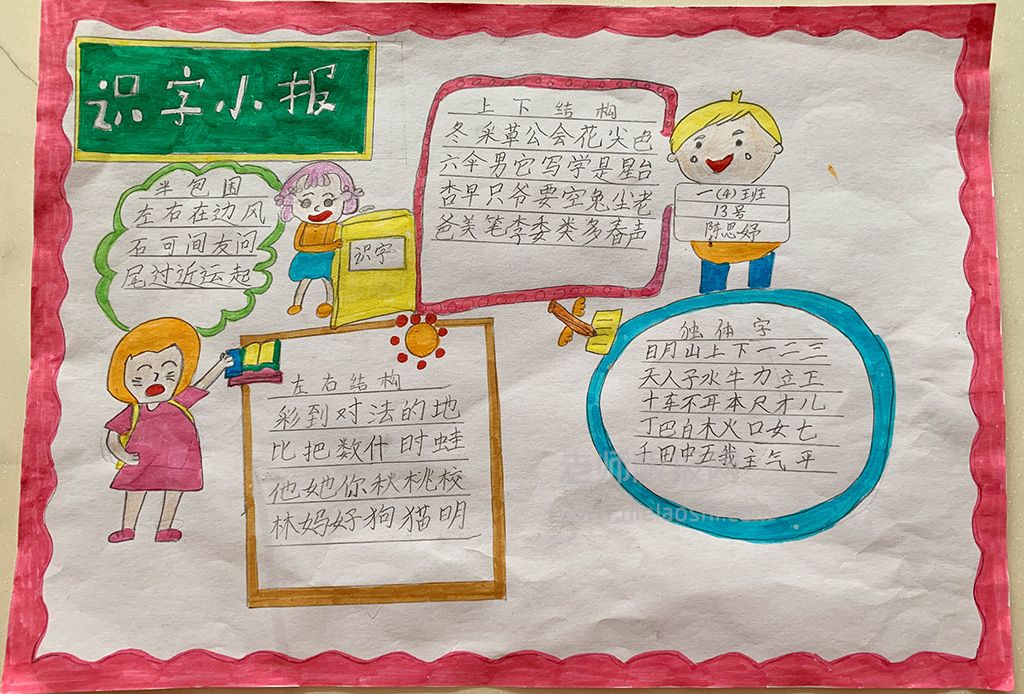 识字小报
半包围
左右在边风
石可间友问
尾过近运起
识字
上下结构
冬采草公会花尖色
六伞男它写学是星台
杏早只爷要空兔尘老
爸美笔李委类多春声
一(4)班
13号
陈思妤
左右结构
彩到对法的地
比把数什时蛙
他她你秋桃校
林妈好狗猫明
独体字
日月山上下一二三
天人子水牛力立正
十车不耳本尺才儿
丁巴白木火口女七
千田中五我主气平